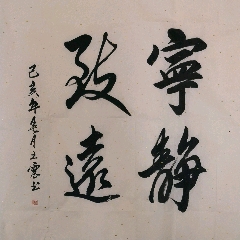 寧靜
致遠
己亥年
月
書